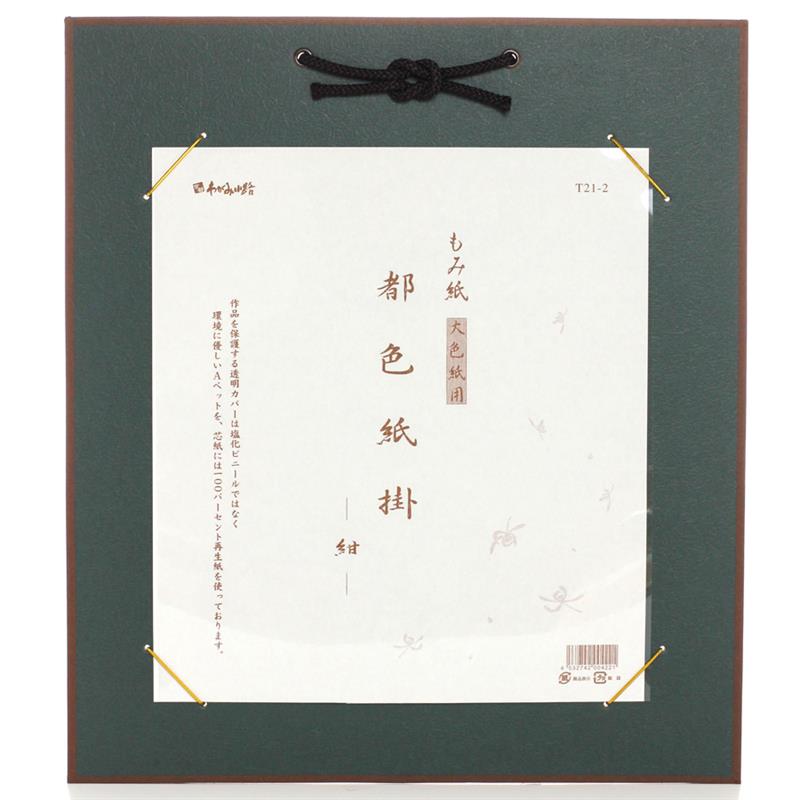 わがみ小路
T21-2
もみ紙 大色紙用
都色紙掛
―紺―
作品を保護する透明カバーは塩化ビニールではなく
環境に優しいAペットを、芯紙には100パーセント再生紙を使っております。
4 532742 004221
紙 商品表示 プラ 袋